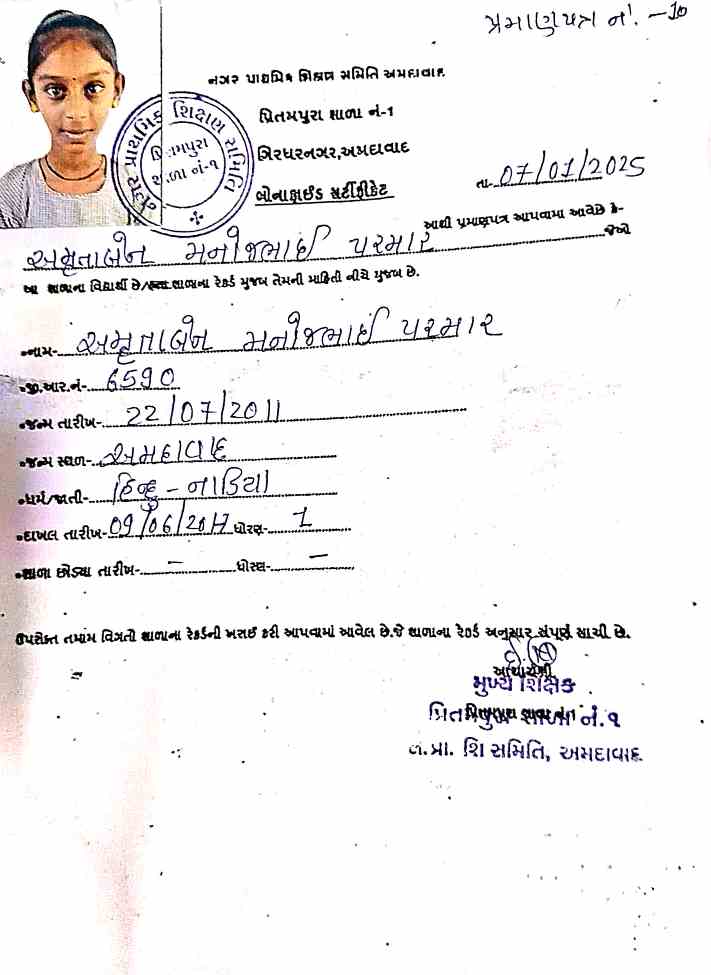 પ્રમાણપત્ર નં. - 10
નગર પ્રાથમિક શિક્ષણ સમિતિ અમદાવાદ
પ્રિતમપુરા શાળા નં-1
ગિરધરનગર,અમદાવાદ
બોનાફાઈડ સર્ટીફીકેટ
તા.-07/01/2025
નગર પ્રાથમિક શિક્ષણ સમિતિ
પ્રિતમપુરા
શાળા નં-૧
આથી પ્રમાણપત્ર આપવામા આવેછે કે-
અમૃતાબેન મનોજભાઈ પરમાર જેઓ
આ શાળાના વિદ્યાર્થી છે/હતા.શાળાના રેકર્ડ મુજબ તેમની માહિતી નીચે મુજબ છે.
•નામ- અમૃતાબેન મનોજભાઈ પરમાર
•જી.આર.નં- 6590
•જન્મ તારીખ- 22/07/2011
•જન્મ સ્થળ- અમદાવાદ
•ધર્મ/જાતી- હિન્દુ - નાડિયા
•દાખલ તારીખ- 09/06/2017 ધોરણ- 1
•શાળા છોડ્યા તારીખ- - ધોરણ- -
ઉપરોક્ત તમામ વિગતો શાળાના રેકર્ડની ખરાઈ કરી આપવામાં આવેલ છે.જે શાળાના રેકર્ડ અનુસાર સંપૂર્ણ સાચી છે.
આચાર્યશ્રી
મુખ્ય શિક્ષક
પ્રિતમપુરા શાળા નં.૧
ન.પ્રા. શિ સમિતિ, અમદાવાદ